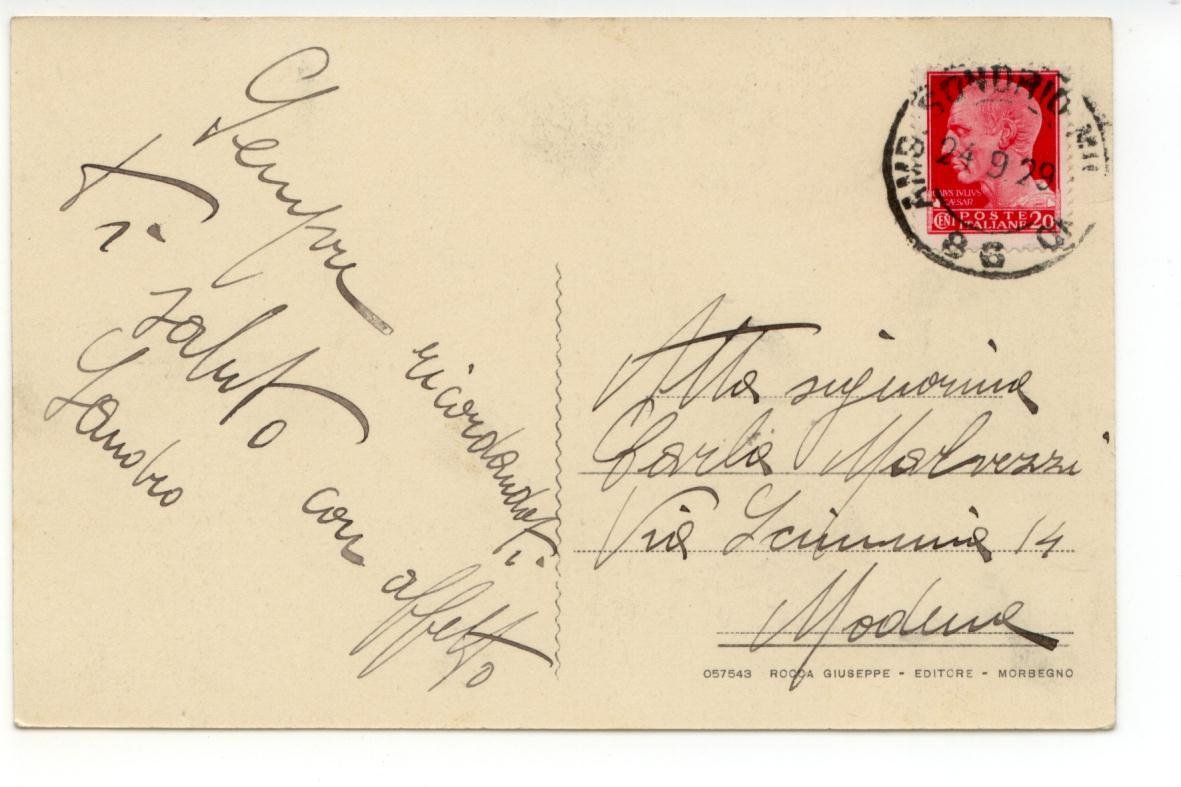 Sempre ricordandoti
Ti saluto con affetto
Sandro
AMB. SONDRIO MIL
24 9 29
IVLIVS
CAESAR
CENT POSTE ITALIANE 20
Alla signorina
Carla Malvezzi
Via Scimmia 14
Modena
057543 ROCCA GIUSEPPE - EDITORE - MORBEGNO